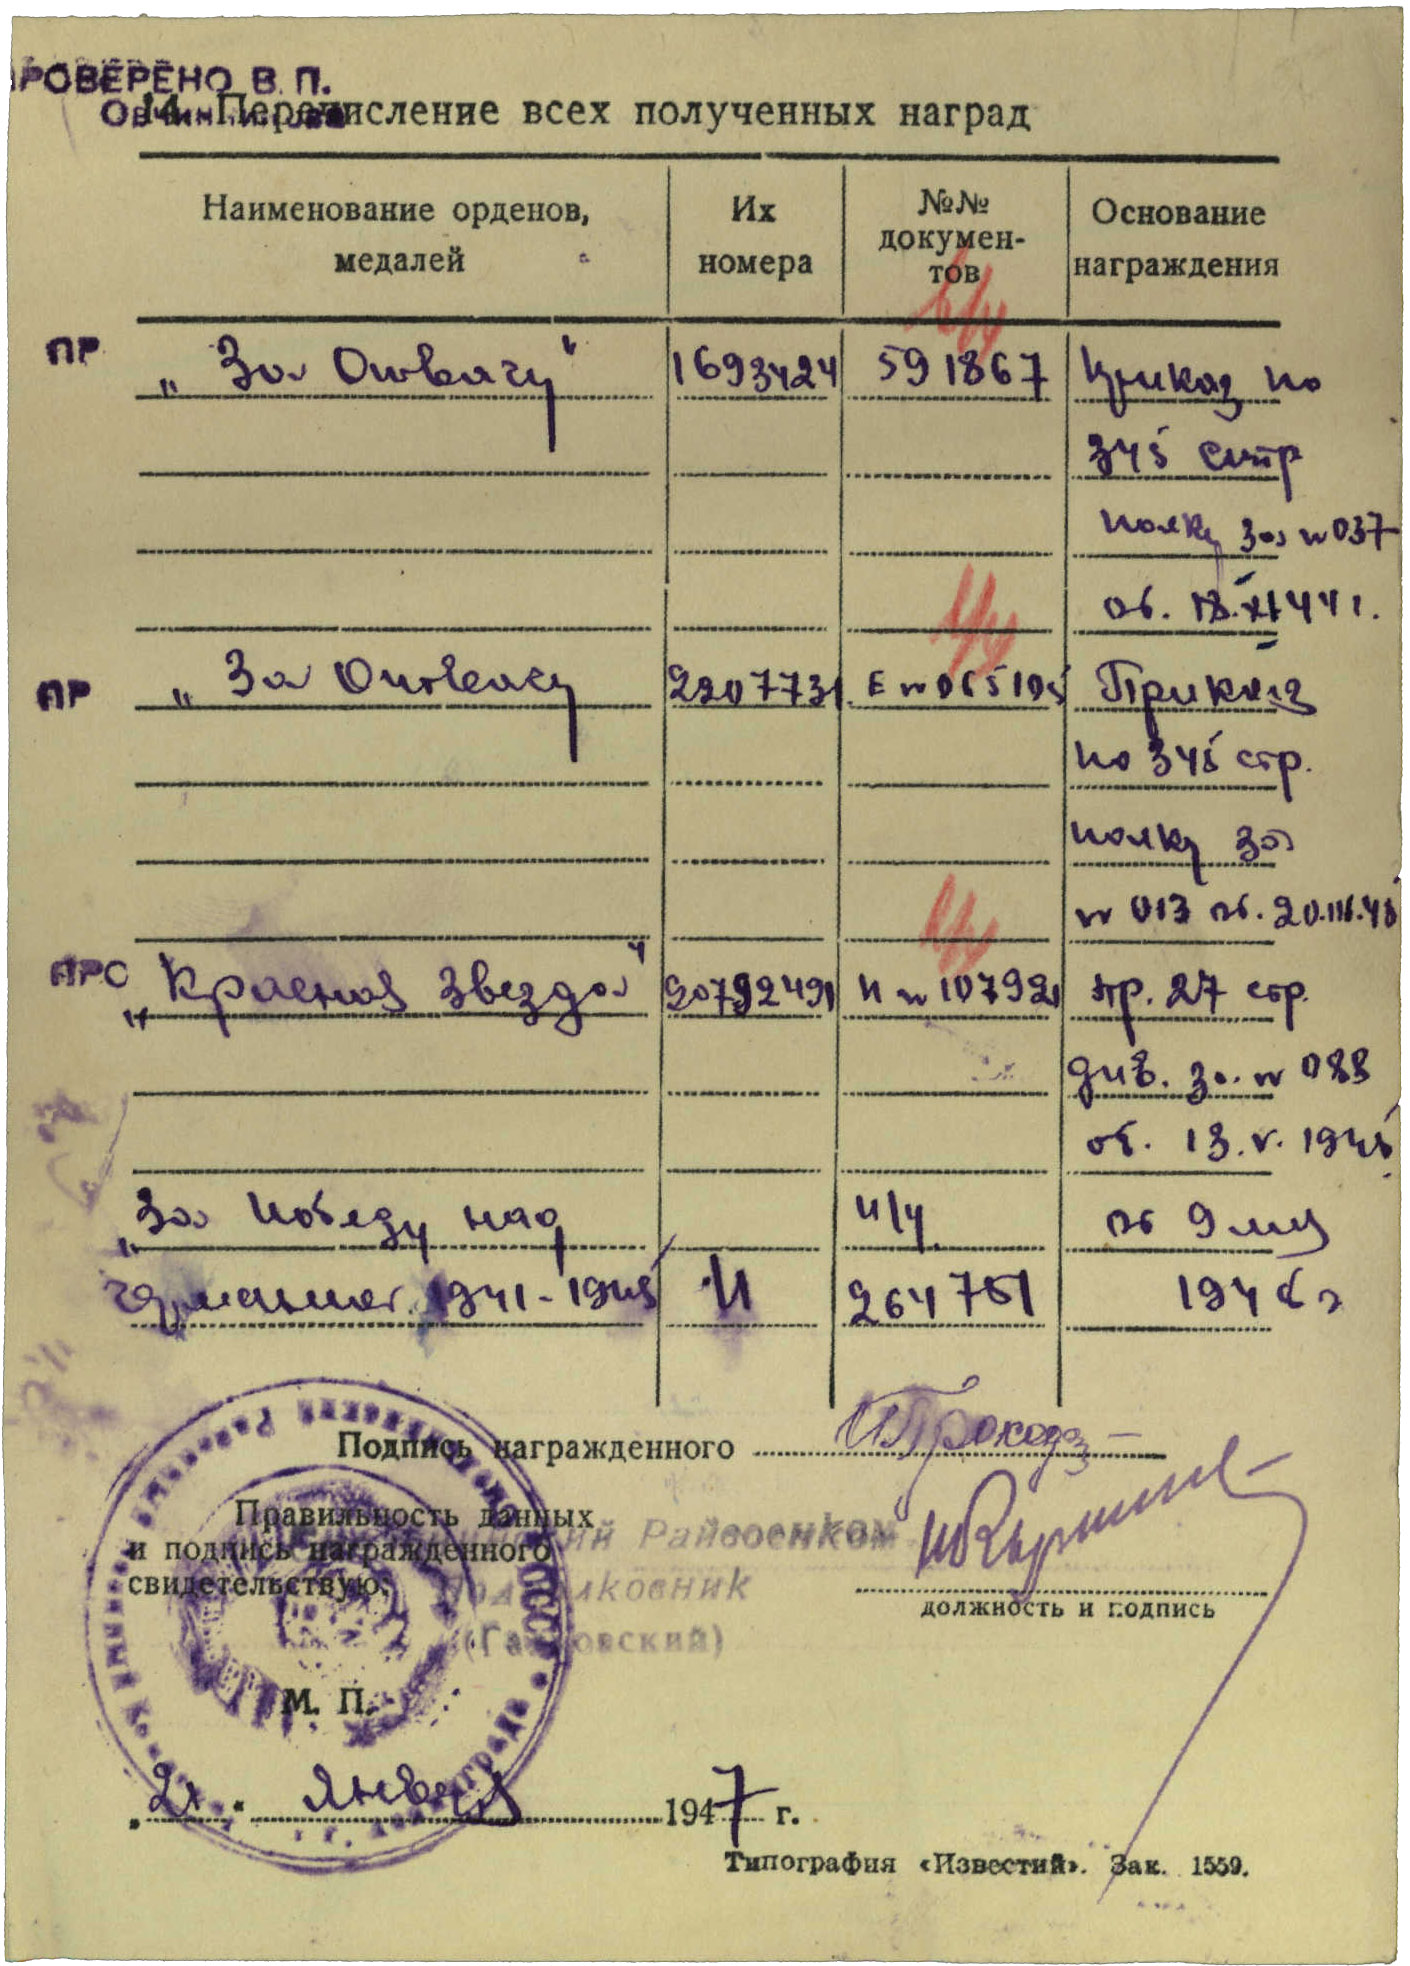 ПРОВЕРЕНО В. П.
14. Перечисление всех полученных наград
Наименование орденов, медалей
Их номера
№№ докумен- тов
Основание награждения
ПР „За Отвагу" 1693424 591867 Приказ по
345 стр
полку за № 037
от. 18.XI 44 г.
ПР „За Отвагу 2207731 Е № 065105 Приказ
по 345 стр.
полку за
№ 013 от. 20.III.45
ПРС „Красная Звезда" И № 107921 пр. 27 стр.
див. за № 088
от. 13.V. 1945
„За Победу над н/у от 9 мая
Германией 1941-1945 И 264751 1945 г
Подпись награжденного
Правильность данных
и подпись награжденного
свидетельствую:
Райвоенком
Подполковник
должность и подпись
М. П.
„21" Января 1947 г.
Типография «Известий». Зак. 1559.